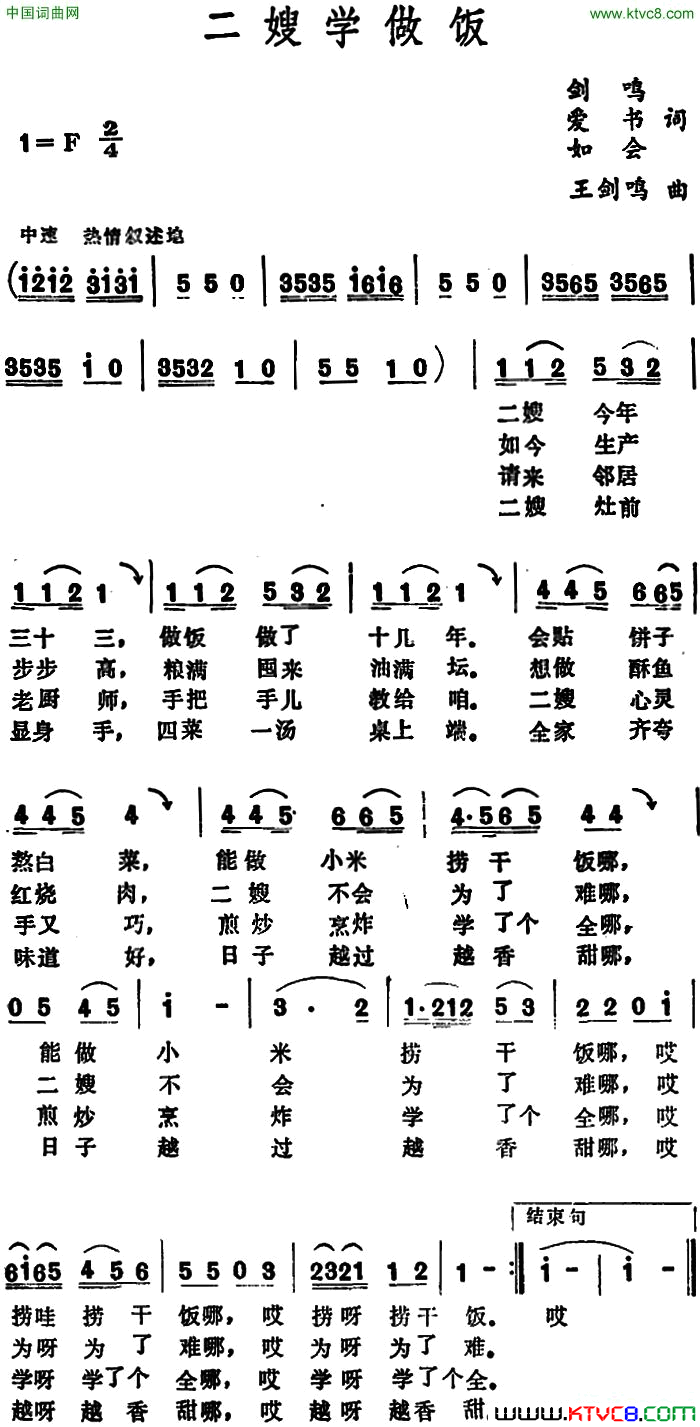 中国词曲网
www.ktvc8.com
二嫂学做饭
剑鸣
爱书 词
如会
1=F 2/4
王剑鸣 曲
中速 热情叙述地
(1212 3131 | 5 5 0 | 3535 1616 | 5 5 0 | 3565 3565 |
3535 1 0 | 3532 1 0 | 5 5 1 0 ) | 1 1 2 5 3 2
二嫂 今年
如今 生产
请来 邻居
二嫂 灶前
1 1 2 1 | 1 1 2 5 3 2 | 1 1 2 1 | 4 4 5 6 6 5
三十 三, 做饭 做了 十几 年。 会贴 饼子
步步 高, 粮满 囤来 油满 坛。 想做 酥鱼
老厨 师, 手把 手儿 教给 咱。 二嫂 心灵
显身 手, 四菜 一汤 桌上 端。 全家 齐夸
4 4 5 4 | 4 4 5 6 6 5 | 4·5 6 5 4 4 |
熬白 菜, 能做 小米 捞干 饭哪,
红烧 肉, 二嫂 不会 为了 难哪,
手又 巧, 煎炒 烹炸 学了个 全哪,
味道 好, 日子 越过 越香 甜哪,
0 5 4 5 | 1 - | 3 · 2 | 1·212 5 3 | 2 2 0 1 |
能做 小 米 捞 干 饭哪, 哎
二嫂 不 会 为 了 难哪, 哎
煎炒 烹 炸 学 了个 全哪, 哎
日子 越 过 越 香 甜哪, 哎
结束句
6165 4 5 6 | 5 5 0 3 | 2321 1 2 | 1 - :‖ 1 - | 1 - ‖
捞哇 捞干 饭哪, 哎 捞呀 捞干 饭。 哎
为呀 为了 难哪, 哎 为呀 为了 难。
学呀 学了个 全哪, 哎 学呀 学了个全。
越呀 越香 甜哪, 哎 越呀 越香 甜
www.KTVC8.COM